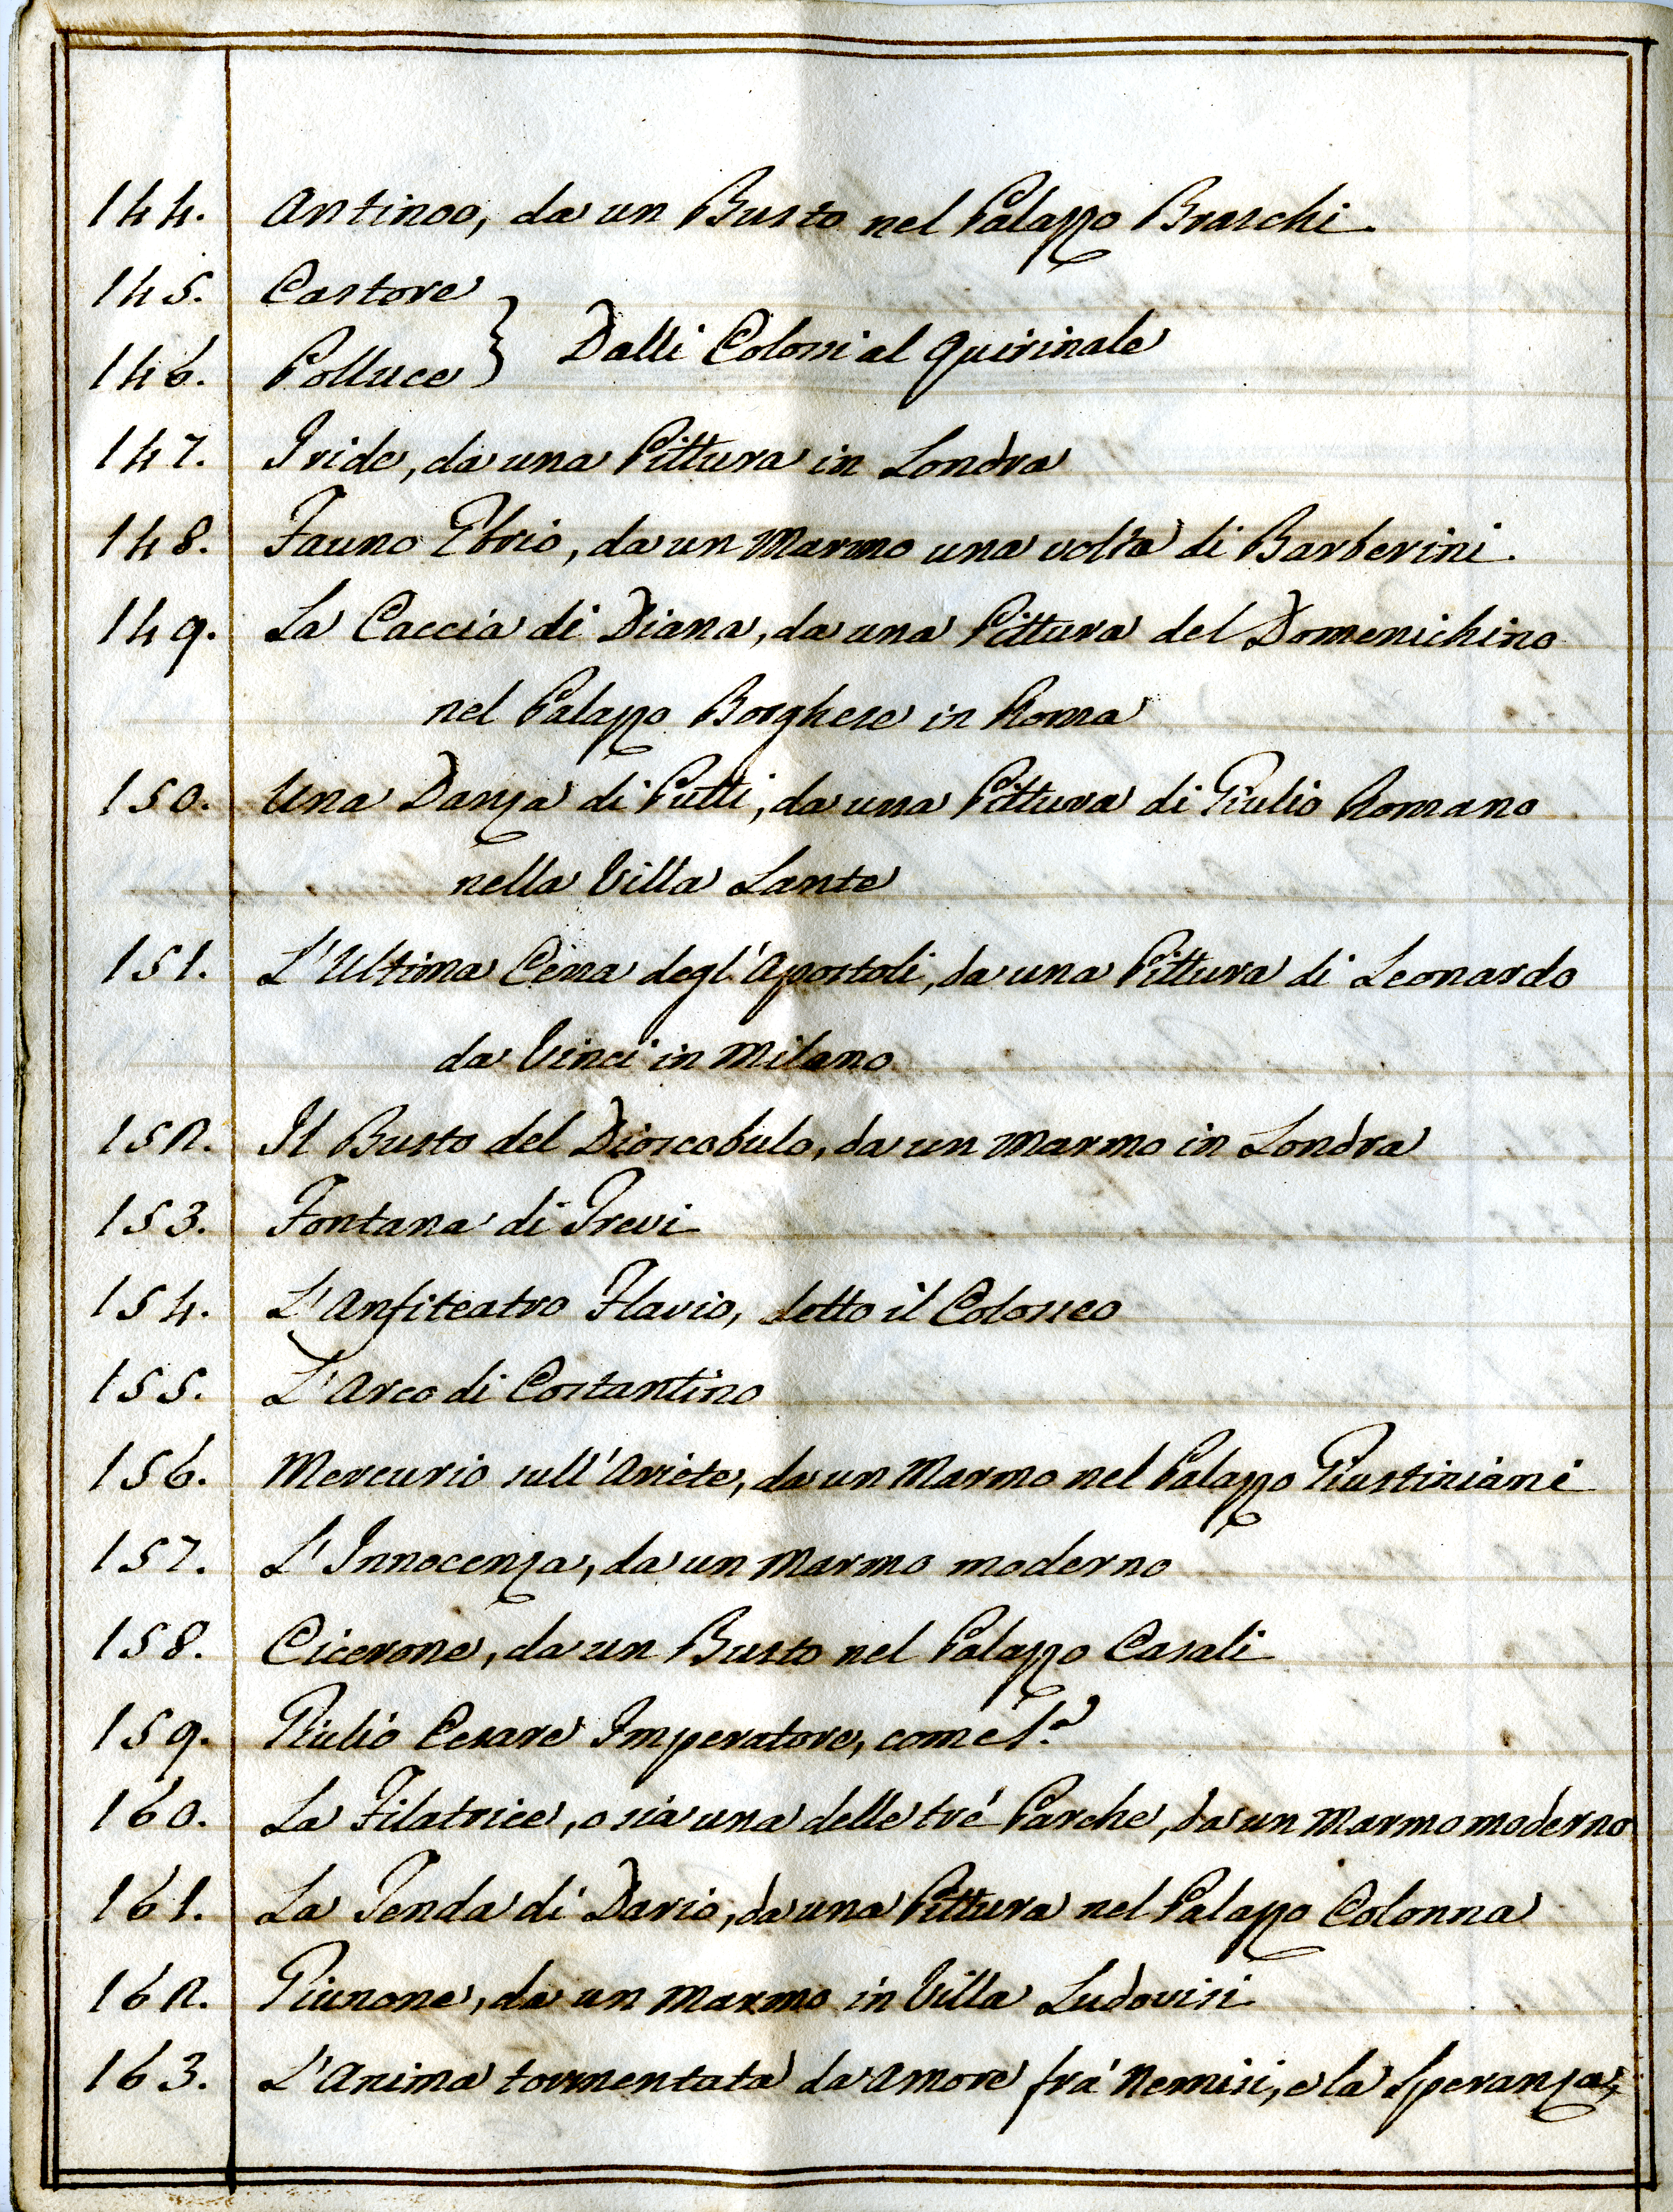 144. Antinoo, da un Busto nel Palazzo Braschi.
145. Castore
Dalli Colossi al Quirinale
146. Polluce
147. Iride, da una Pittura in Londra
148. Fauno Ebrio, da un Marmo una volta di Barberini.
149. La Caccia di Diana, da una Pittura del Domenichino
nel Palazzo Borghese in Roma
150. Una Danza di Putti, da una Pittura di Giulio Romano
nella Villa Lante
151. L'Ultima Cena degl'Apostoli, da una Pittura di Leonardo
da Vinci in Milano
152. Il Busto del Dioscobulo, da un Marmo in Londra
153. Fontana di Trevi
154. L'Anfiteatro Flavio, detto il Colosseo
155. L'Arco di Costantino
156. Mercurio sull'Ariete, da un Marmo nel Palazzo Giustiniani
157. L'Innocenza, da un Marmo moderno
158. Cicerone, da un Busto nel Palazzo Casali
159. Giulio Cesare Imperatore, come s.ª
160. La Filatrice, o sia una delle trè Parche, da un Marmo moderno
161. La Tenda di Dario, da una Pittura nel Palazzo Colonna
162. Giunone, da un Marmo in Villa Ludovisi
163. L'Anima tormentata da Amore frà Nemisi, e la Speranza,